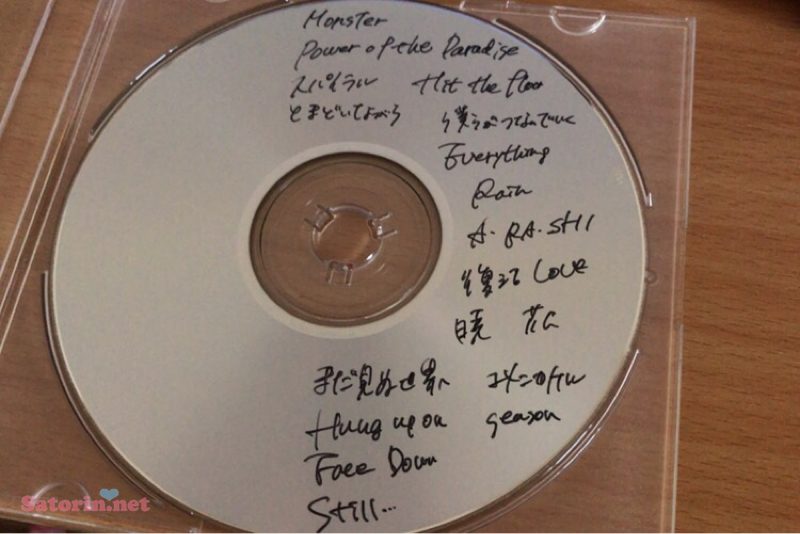 Monster
Power of the Paradise
スパイラル Hit the floor
とまどいながら 僕らがつないでいく
Everything
Rain
A・RA・SHI
復活 Love
暁 花
まだ見ぬ世界へ
Hung up on season
Face Down
Still...
Satorin.net